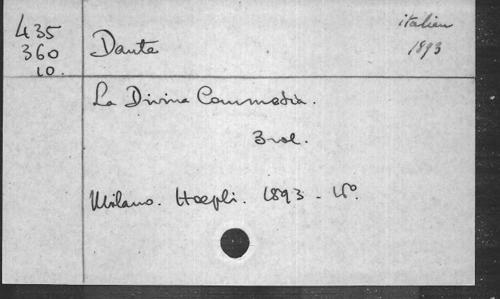 435
360
10.
Dante
italien
1893
La Divina Commedia.
3 vol.
Milano. Hoepli. 1893 - 16°.